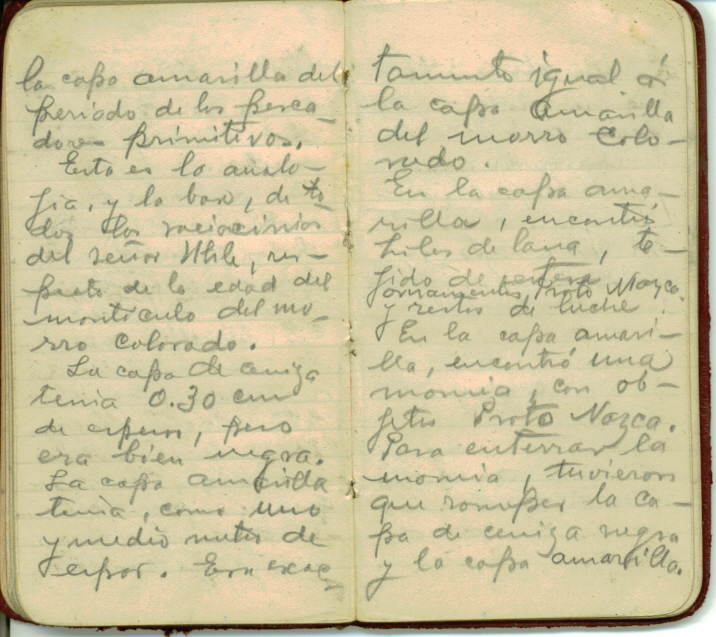 la capa amarilla del
periodo de los pesca-
dores primitivos.
Esta es la analo-
gia, y la base, de to-
dos los raciocinios
del señor Uhle, res-
pecto de la edad del
monticulo del mo-
rro Colorado.
La capa de ceniza
tenia 0.30 cm
de espesor, pero
era bien negra.
La capa amarilla
tenia, como uno
y medio metros de
espsor. Era exac-
tamente igual á
la capa amarilla
del morro Colo-
rado.
En la capa ama-
rilla, encontró
hilos de lana, te-
jido de
ornamentos, Proto Nazca.
y restos de luche.
En la capa amari-
lla, encontró una
momia, con ob-
jetos Proto Nazca.
Para enterrar la
momia, tuvieron
que romper la ca-
pa de ceniza negra
y la capa amarilla.